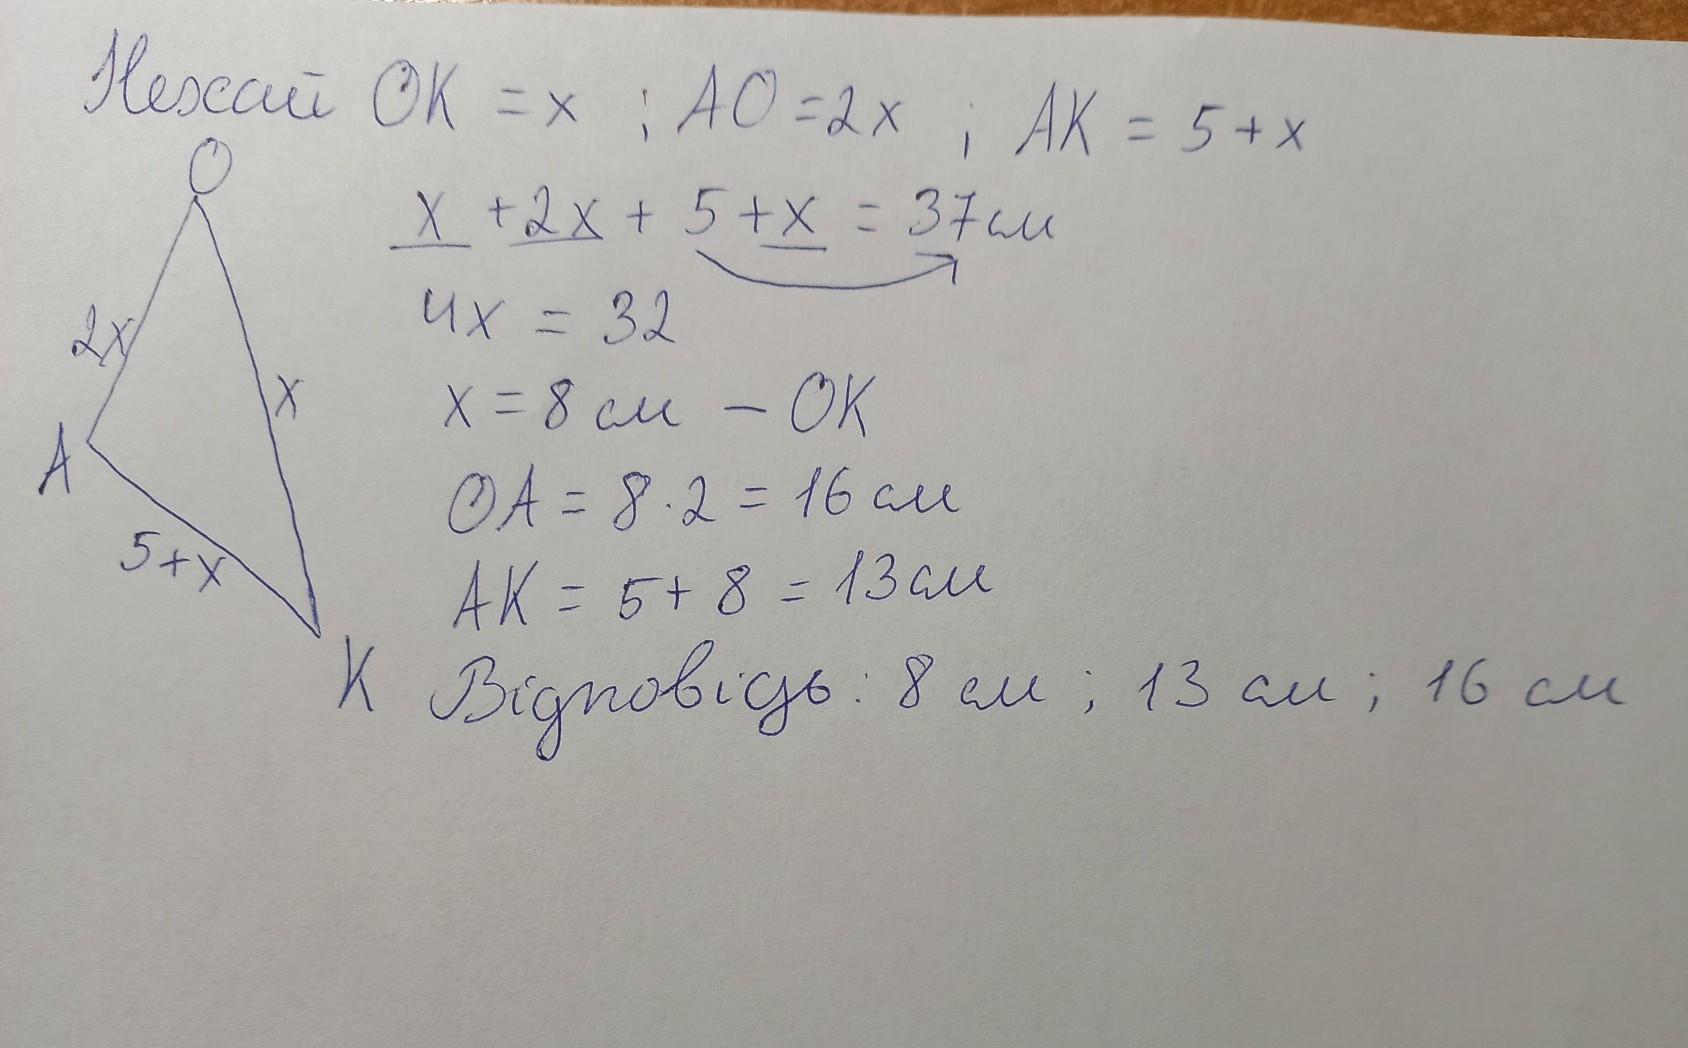 Нехай OK = x ; AO = 2x ; AK = 5 + x
O
x + 2x + 5 + x = 37 см
4x = 32
2x
x
x = 8 см – OK
A
OA = 8 · 2 = 16 см
5+x
AK = 5 + 8 = 13 см
K
Відповідь: 8 см ; 13 см ; 16 см